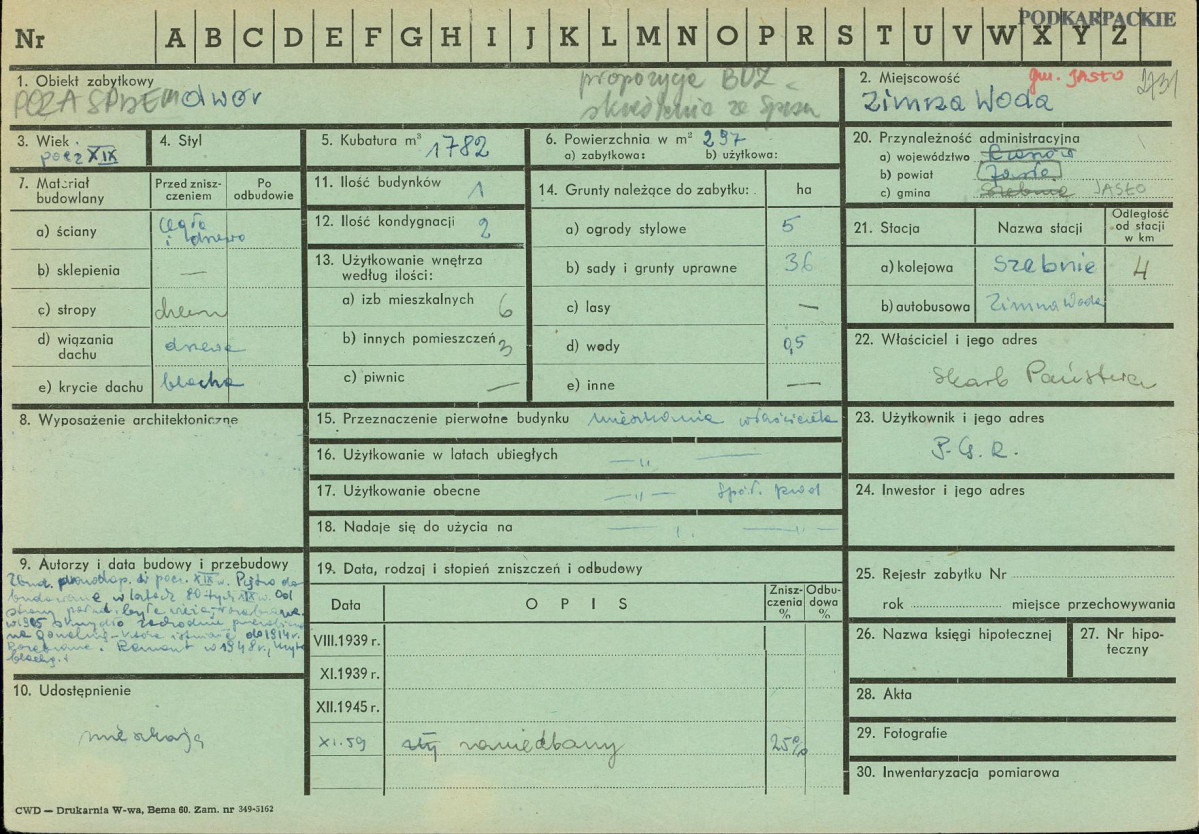 PODKARPACKIE
Nr A B C D E F G H I J K L M N O P R S T U V W X Y Z
1. Obiekt zabytkowy
POZA SPISEM dwór
propozycja BDZ
skreślenia ze spisu
2. Miejscowość
gm. JASŁO
2731
Zimna Woda
3. Wiek
pocz XIX
4. Styl
5. Kubatura m³ 1782
6. Powierzchnia w m² 297
a) zabytkowa: b) użytkowa:
20. Przynależność administracyjna
a) województwo Rzeszów
b) powiat Jasło
c) gmina Szebnie JASŁO
7. Materiał budowlany
Przed zniszczeniem
Po odbudowie
a) ściany cegła i drewno
b) sklepienia —
c) stropy drewn
d) wiązania dachu drewn
e) krycie dachu blacha
11. Ilość budynków 1
12. Ilość kondygnacji 2
13. Użytkowanie wnętrza według ilości:
a) izb mieszkalnych 6
b) innych pomieszczeń 3
c) piwnic —
14. Grunty należące do zabytku: ha
a) ogrody stylowe 5
b) sady i grunty uprawne 36
c) lasy —
d) wody 0,5
e) inne —
21. Stacja
Nazwa stacji
Odległość od stacji w km
a) kolejowa Szebnie 4
b) autobusowa Zimna Woda
22. Właściciel i jego adres
Skarb Państwa
8. Wyposażenie architektoniczne
15. Przeznaczenie pierwotne budynku mieszkanie właściciela
16. Użytkowanie w latach ubiegłych —„—
17. Użytkowanie obecne —„—
18. Nadaje się do użycia na —„—
23. Użytkownik i jego adres
P.G.R.
24. Inwestor i jego adres
9. Autorzy i data budowy i przebudowy
w pocz. XIX w. Piętro do
budowane w latach 80 tych XIX w. Od
w 1905
do 1914 r.
Remont w 1948 r.,
blachy.
10. Udostępnienie
mieszkają
19. Data, rodzaj i stopień zniszczeń i odbudowy
Data
OPIS
Zniszczenia %
Odbudowa %
VIII.1939 r.
XI.1939 r.
XII.1945 r.
XI.59 zaniedbany 25%
25. Rejestr zabytku Nr
rok miejsce przechowywania
26. Nazwa księgi hipotecznej
27. Nr hipoteczny
28. Akta
29. Fotografie
30. Inwentaryzacja pomiarowa
CWD — Drukarnia W-wa, Bema 60. Zam. nr 349-5162